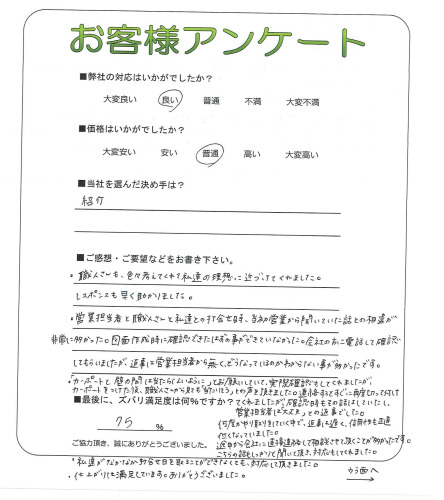 お客様アンケート
■弊社の対応はいかがでしたか?
大変良い 良い 普通 不満 大変不満
■価格はいかがでしたか?
大変安い 安い 普通 高い 大変高い
■当社を選んだ決め手は?
紹介
■ご感想・ご要望などをお書き下さい。
・職人さんも、色々考えてくれて私達の理想に近づけてくれました。
レスポンスも早く助かりました。
・営業担当者と職人さんと私達との打合せ時、当初営業から聞いていた話との相違が
非常に多かった。図面作成時に確認できたはずの事ができていなかった。会社の方に電話して確認
してもらいましたが、返事は営業担当者から無く、どうなっているのかわからない事が多かったです。
・カーポートと壁の間は当たらないようにしてお願いしていて、実際確認もしてくれましたが、
カーポートをつけた後、職人さんから
■最後に、ズバリ満足度は何%ですか?
営業担当者は大丈夫との返事でした。
75 %
何度かやり取りをしていく中で、返事は遅く、信用も正直
無くなっていました。
ご協力頂き、誠にありがとうございました。
こちらの話もしっかりと聞いて頂き、対応もしてくれました。
・私達がなかなか打合せ日を取ることができなくても、対応して頂きました。
・仕上がりには満足しています。ありがとうございました。
うら面へ